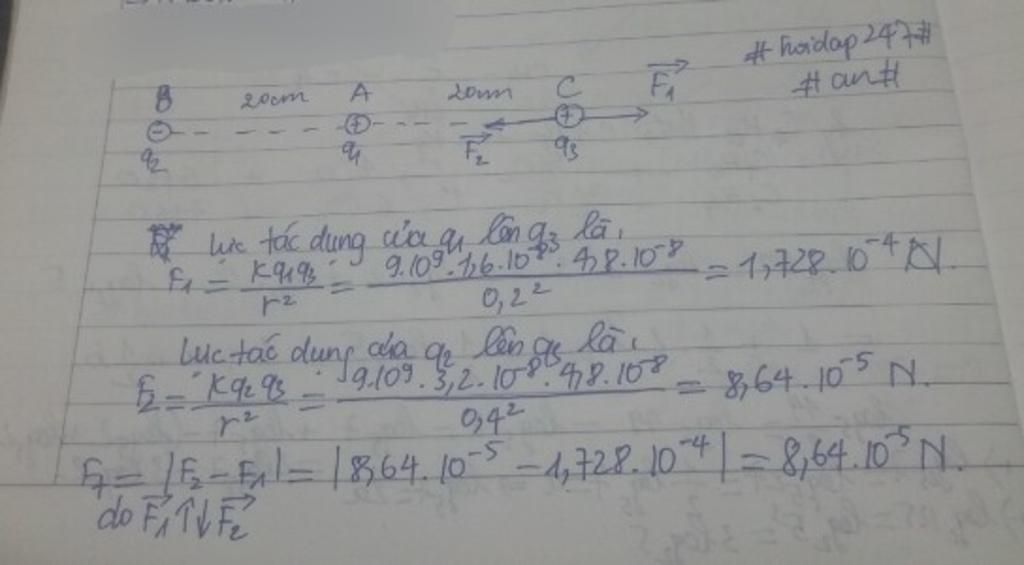 #hoidap247#
#an#
B 20cm A 20cm C F₁
q₂ q₁ F₂ q₃
Lực tác dụng của q₁ lên q₃ là,
F₁ = Kq₁q₃/r² = 9.10⁹.1,6.10⁻⁸.4,8.10⁻⁸/0,2² = 1,728.10⁻⁴ N.
Lực tác dụng của q₂ lên q₃ là,
F₂ = Kq₂q₃/r² = 9.10⁹.3,2.10⁻⁸.4,8.10⁻⁸/0,4² = 8,64.10⁻⁵ N.
= |F₂ - F₁| = |8,64.10⁻⁵ - 1,728.10⁻⁴| = 8,64.10⁻⁵ N.
do F₁ ↑↓ F₂